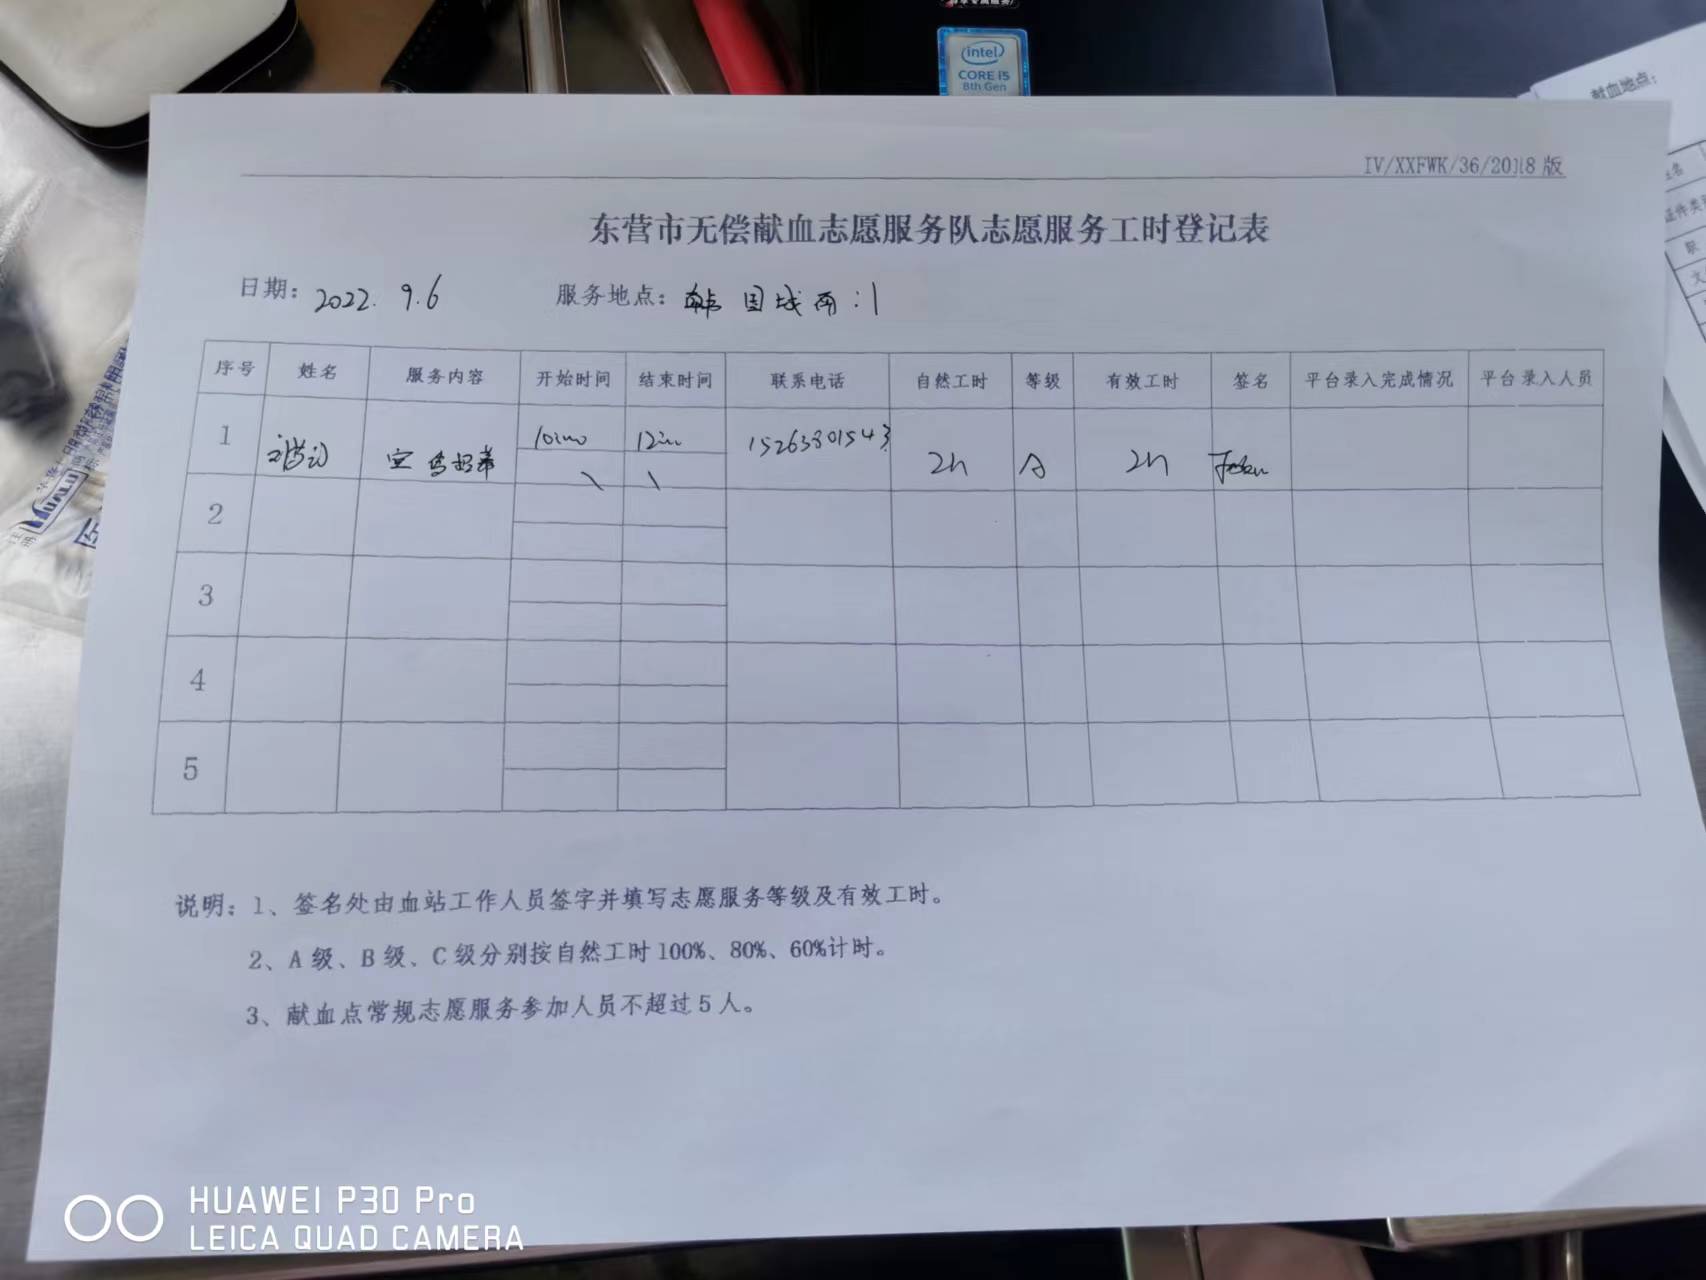 intel
CORE i5
8th Gen
献血地点：
IV/XXFWK/36/2018 版
东营市无偿献血志愿服务队志愿服务工时登记表
日期： 2022. 9.6 服务地点： 韩国城南门
序号 姓名 服务内容 开始时间 结束时间 联系电话 自然工时 等级 有效工时 签名 平台录入完成情况 平台录入人员
1 宣传招募 10:00 12:00 15263801543 2h A 2h
2
3
4
5
说明：1、签名处由血站工作人员签字并填写志愿服务等级及有效工时。
2、A 级、B 级、C 级分别按自然工时 100%、80%、60%计时。
3、献血点常规志愿服务参加人员不超过 5 人。
HUAWEI P30 Pro
LEICA QUAD CAMERA